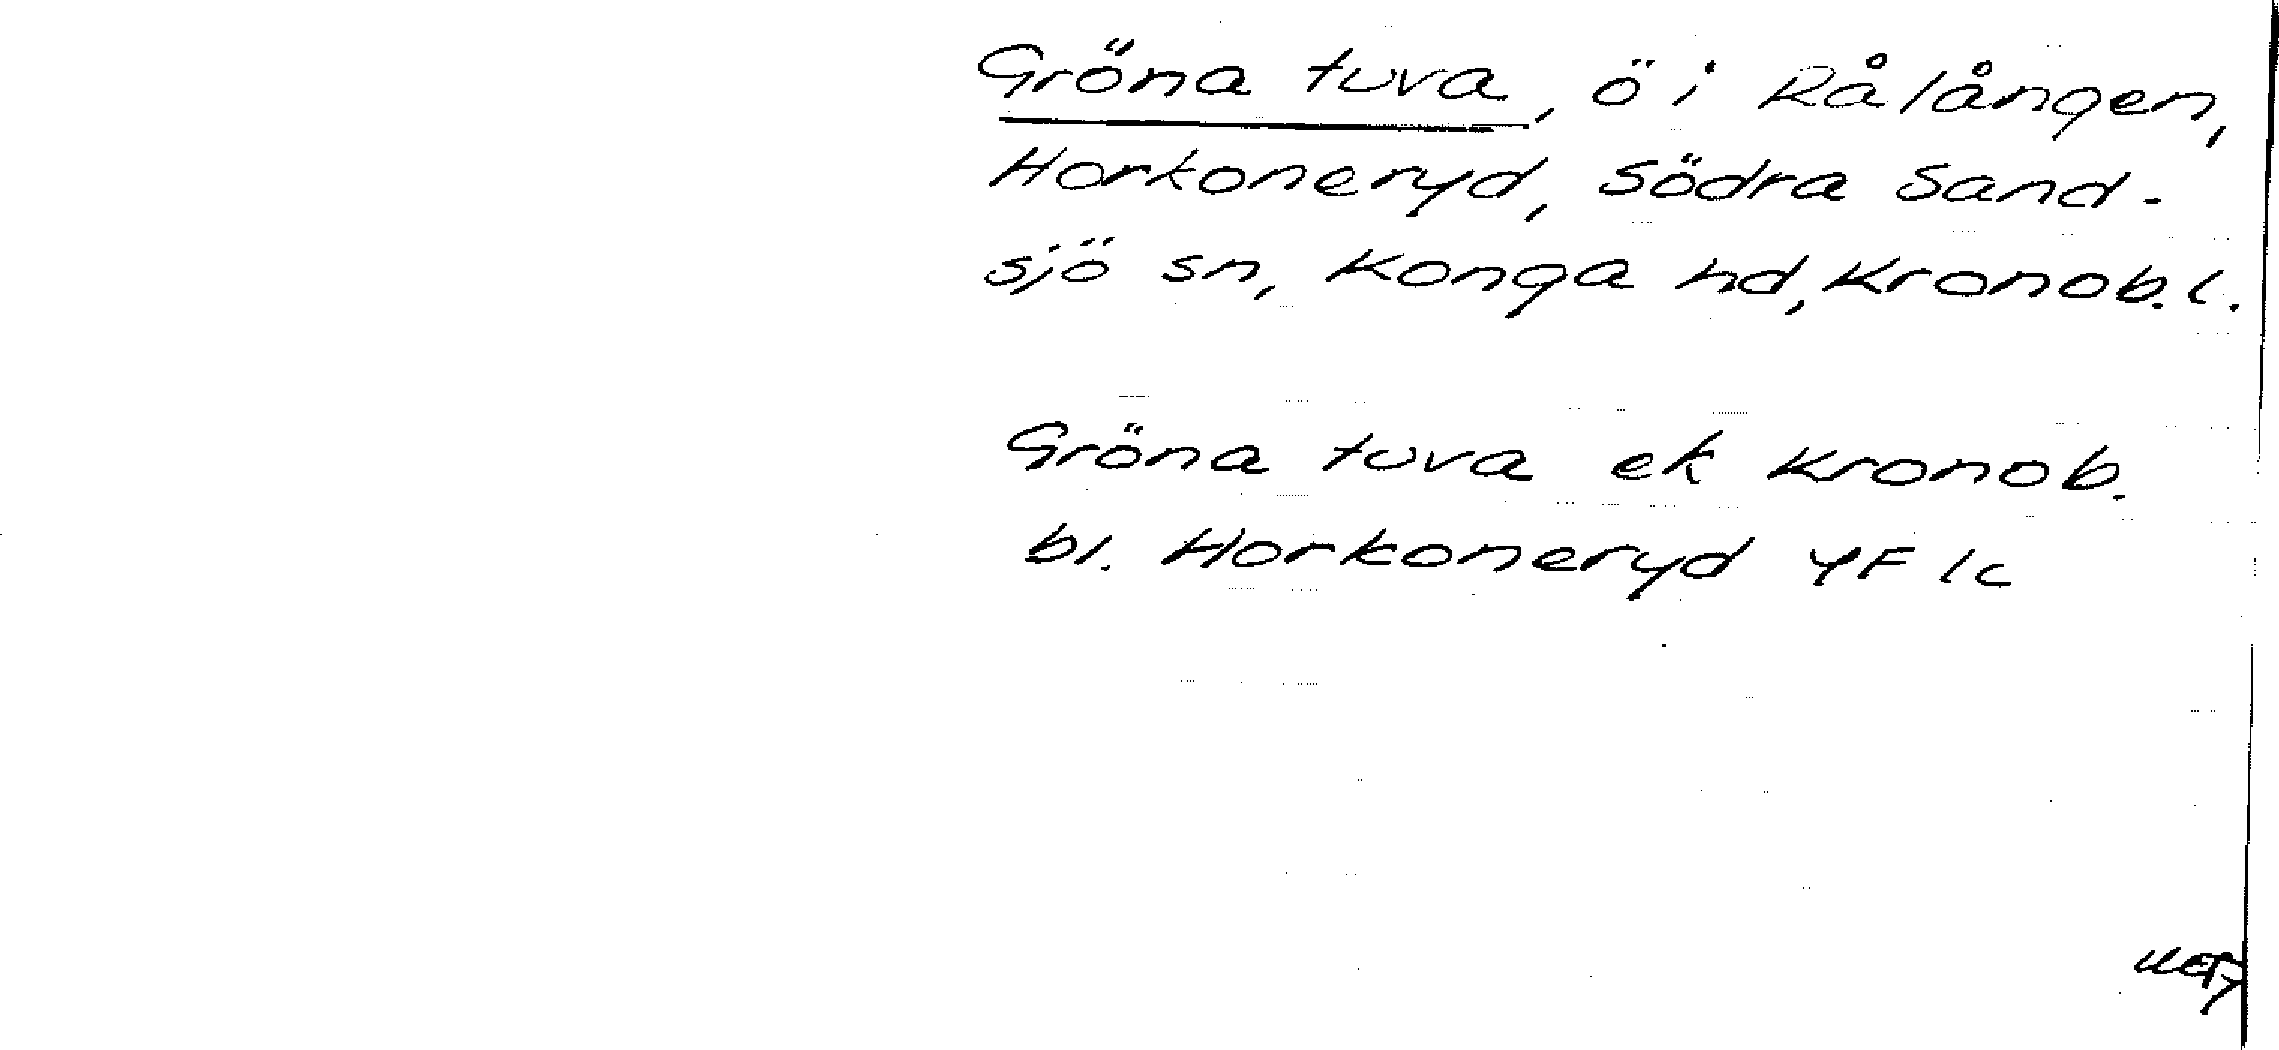 Gröna tuva, ö i Rålången,
Horkoneryd, Södra Sand-
sjö sn, Konga hd, Kronob. l.
Gröna tuva ek Kronob.
bl. Horkoneryd YF 1c